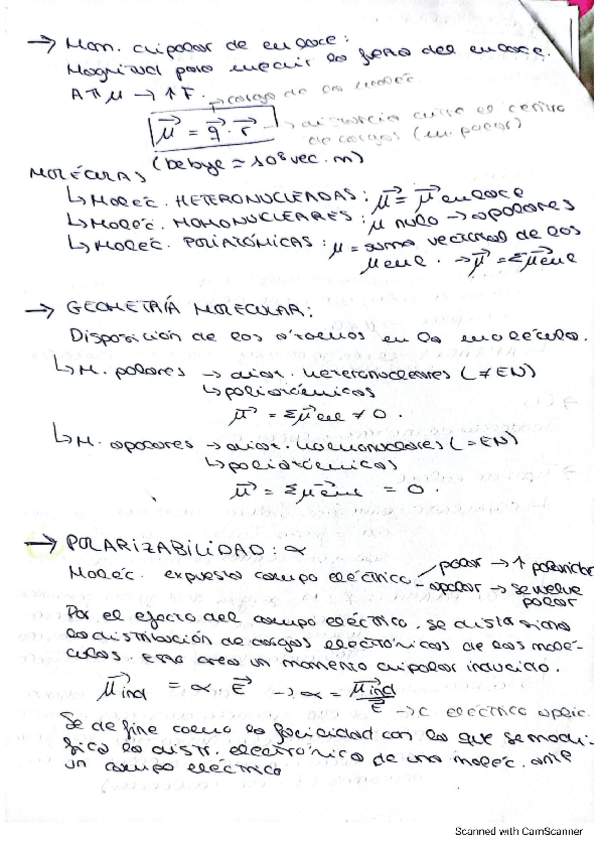 → Mom. dipolar de enlace:
Magnitud para medir la fuerza del enlace.
A ↑↑ μ → ↑ F. → carga de la moléc.
μ⃗ = q⃗ · r⃗ → distancia entre el centro
de cargas (un poder)
(Debye = 10⁸ vec. m)
MOLÉCULAS
↳ Moléc. HETERONUCLEADAS: μ⃗ = μ⃗ enlace
↳ Moléc. HOMONUCLEARES: μ nulo → apolares
↳ Moléc. POLIATÓMICAS: μ = suma vectorial de los
μ enl. → μ⃗ = Σμ⃗enl
→ GEOMETRÍA MOLECULAR:
Disposición de los átomos en la molécula.
↳ M. polares → diat. heteronucleares (≠EN)
↳ poliatómicas
μ⃗ = Σμ⃗enl ≠ 0.
↳ M. apolares → diat. homonucleares (=EN)
↳ poliatómicas
μ⃗ = Σμ⃗enl = 0.
→ POLARIZABILIDAD: α
Moléc. expuesta campo eléctrico polar → ↑ polaridad
- apolar → se vuelve
polar
Por el efecto del campo eléctrico, se distorsiona
la distribución de cargas electrónicas de las molé-
culas. Esto crea un momento dipolar inducido.
μ⃗ind = α · E⃗ → α = μ⃗ind / E⃗ → C eléctrico aplic.
Se define como la facilidad con la que se modi-
fica la distr. electrónica de una moléc. ante
un campo eléctrico
Scanned with CamScanner